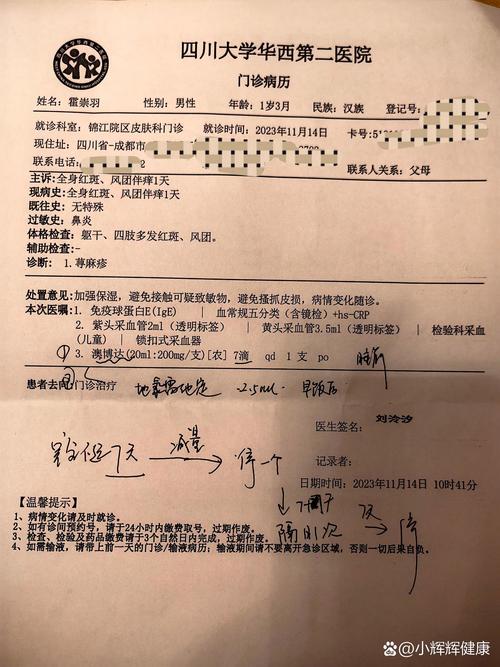 四川大学华西第二医院
门诊病历
姓名：霍崇羽 性别：男性 年龄：1岁3月 民族：汉族 登记号：
就诊科室：锦江院区皮肤科门诊 就诊时间：2023年11月14日 卡号：
现住址：四川省-成都市
联系电话： 2 联系人关系：父母
主诉：全身红斑、风团伴痒1天
现病史：全身红斑、风团伴痒1天
既往史：无特殊
过敏史：鼻炎
体格检查：躯干、四肢多发红斑、风团。
辅助检查：-
诊断：1.荨麻疹
处置意见：加强保湿，避免接触可疑致敏物，避免搔抓皮损，病情变化随诊。
本次医嘱：1. 免疫球蛋白E(IgE) | 血常规五分类（含镜检）+hs-CRP
2. 紫头采血管2ml（透明标签） | 黄头采血管3.5ml（透明标签） | 检验科采血
(儿童) | 锁扣式采血器
① 3. 澳博达(20ml:200mg/支)[农] 7滴 qd 1支 po 睡前
患者去向：门诊治疗 地氯雷他定 2.5ml 早饭后
医生签名：刘泠汐
7天 减量 停一个
记录者：
日期时间：2023年11月14日 10时41分
【温馨提示】
1、病情变化请及时就诊。
2、如有诊间预约号，请于24小时内缴费取号，过期作废。
3、检查、检验及药品缴费请于3个自然日内完成，过期作废。
4、如需输液，请带上前一天的门诊/输液病历；输液期间请不要离开急诊区域，否则一切后果自负。
停
@小辉辉健康